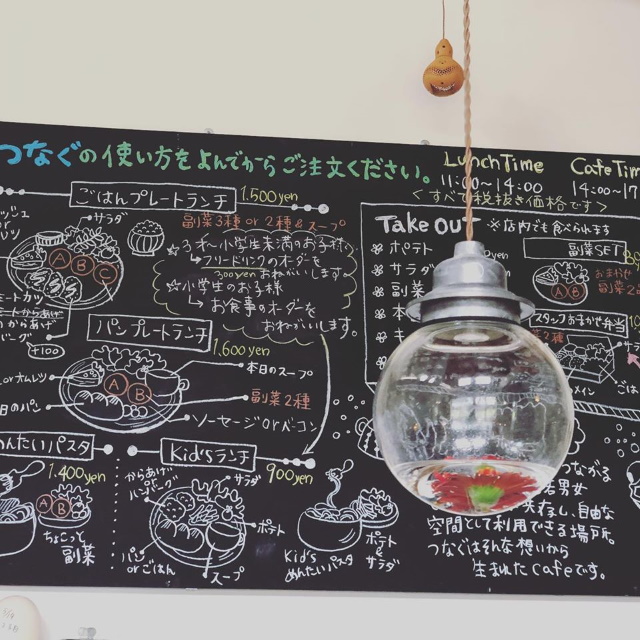 つなぐの使い方をよんでからご注文ください。
Lunch Time
11:00〜14:00
Cafe Tim
14:00〜17
<すべて税抜き価格です>
ごはんプレートランチ
1,500yen
サラダ
副菜3種 or 2種&スープ
A B C
☆3才〜小学生未満のお子様
↳フリードリンクのオーダーを
300yen おねがいします。
☆小学生のお子様
↳お食事のオーダーを
おねがいします。
+100
パンプレートランチ
1,600yen
or オムレツ
本日のスープ
A B
副菜2種
日のパン
ソーセージ or ベーコン
めんたいパスタ
1,400yen
A B
ちょこっと
副菜
Kid'sランチ
900yen
からあげ
or
ハンバーグ
サラダ
ポテト
パン
or ごはん
スープ
Kid's
めんたいパスタ
ポテト
&
サラダ
Take Out
※店内でも食べられます
ポテト
サラダ
副菜
本
副菜SET
おまかせ
副菜2
A B
スタッフおまかせ弁当
メイン
ごは
つながる
若男女
存し、自由な
空間として利用できる場所。
つなぐはそんな想いから
生まれたcafeです。